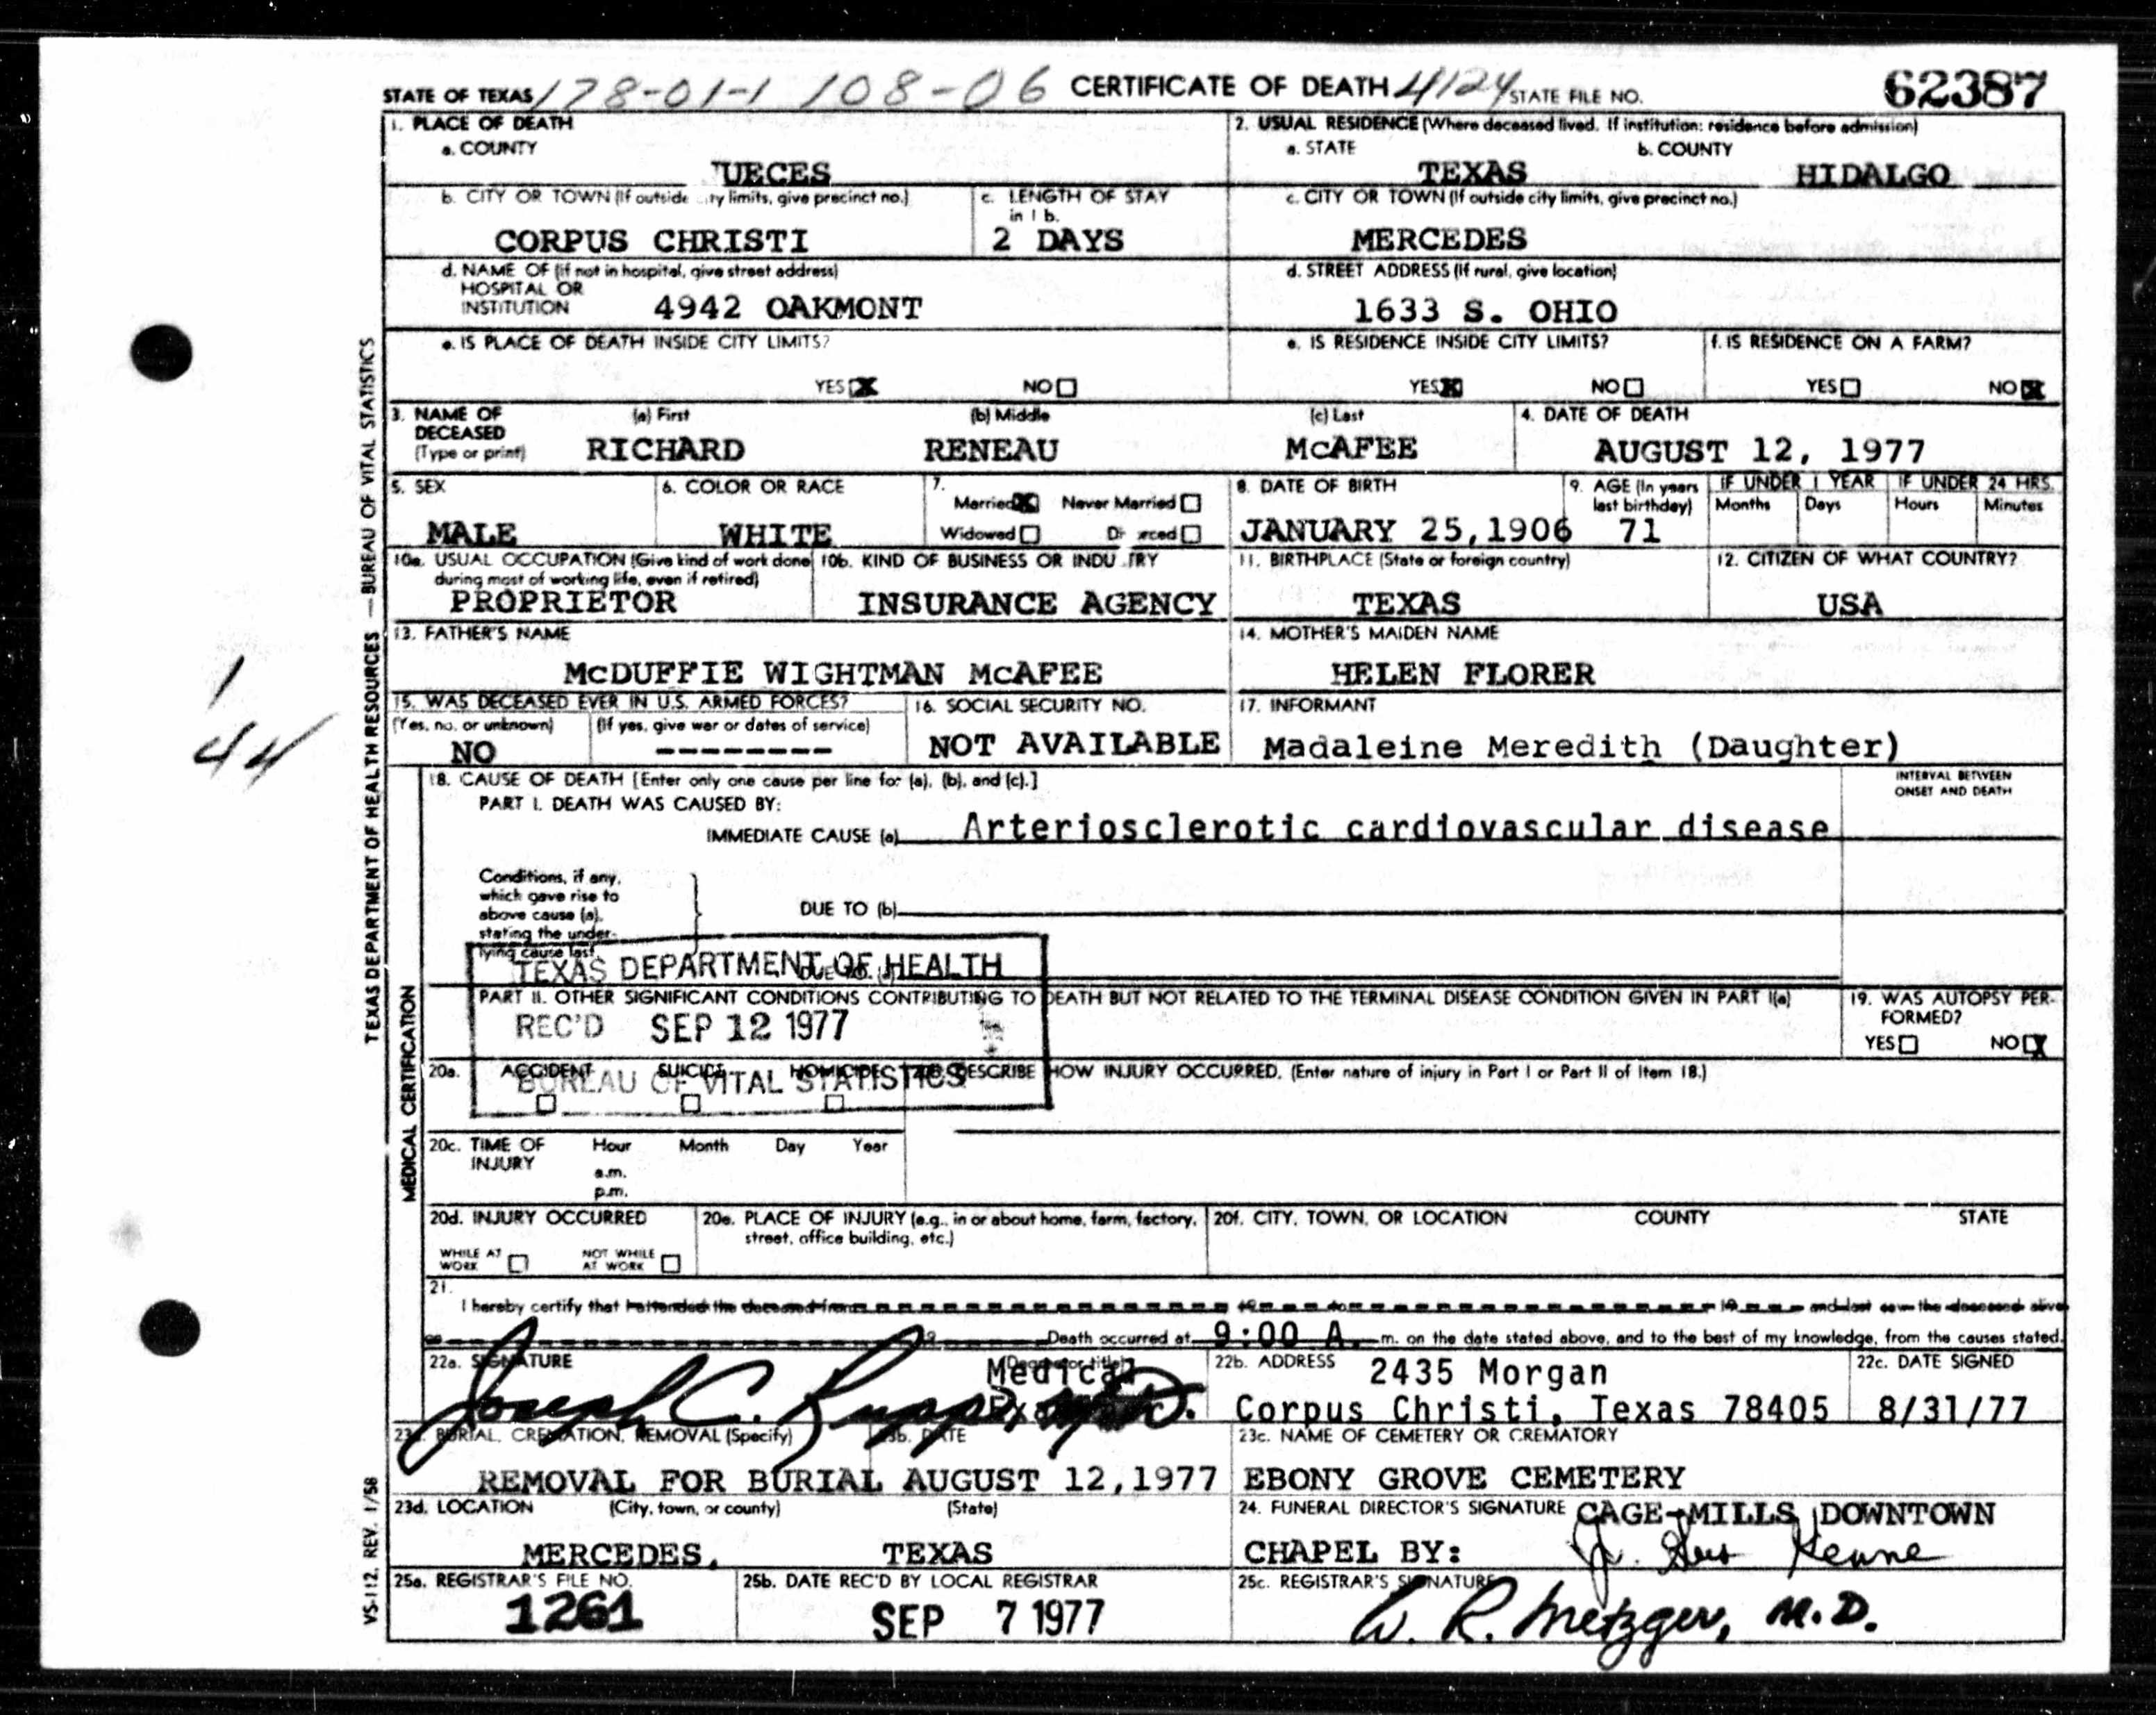 STATE OF TEXAS 178-01-1 108-06 CERTIFICATE OF DEATH 4124 STATE FILE NO. 62387
1. PLACE OF DEATH
a. COUNTY
UECES
2. USUAL RESIDENCE (Where deceased lived. If institution: residence before admission)
a. STATE b. COUNTY
TEXAS HIDALGO
b. CITY OR TOWN (If outside ty limits, give precinct no.) c. LENGTH OF STAY in 1 b.
CORPUS CHRISTI 2 DAYS
c. CITY OR TOWN (If outside city limits, give precinct no.)
MERCEDES
d. NAME OF (If not in hospital, give street address)
HOSPITAL OR
INSTITUTION 4942 OAKMONT
d. STREET ADDRESS (If rural, give location)
1633 S. OHIO
e. IS PLACE OF DEATH INSIDE CITY LIMITS?
YES X NO
e. IS RESIDENCE INSIDE CITY LIMITS? f. IS RESIDENCE ON A FARM?
YES X NO YES NO X
3. NAME OF DECEASED (Type or print) (a) First (b) Middle (c) Last 4. DATE OF DEATH
RICHARD RENEAU McAFEE AUGUST 12, 1977
5. SEX 6. COLOR OR RACE 7. Married X Never Married
Widowed D rced
MALE WHITE
8. DATE OF BIRTH 9. AGE (In years last birthday) IF UNDER 1 YEAR IF UNDER 24 HRS.
Months Days Hours Minutes
JANUARY 25,1906 71
10a. USUAL OCCUPATION (Give kind of work done during most of working life, even if retired) 10b. KIND OF BUSINESS OR INDU TRY
PROPRIETOR INSURANCE AGENCY
11. BIRTHPLACE (State or foreign country) 12. CITIZEN OF WHAT COUNTRY?
TEXAS USA
13. FATHER'S NAME 14. MOTHER'S MAIDEN NAME
McDUFFIE WIGHTMAN McAFEE HELEN FLORER
15. WAS DECEASED EVER IN U.S. ARMED FORCES? 16. SOCIAL SECURITY NO. 17. INFORMANT
(Yes, no, or unknown) (If yes, give war or dates of service)
NO -------- NOT AVAILABLE Madaleine Meredith (Daughter)
18. CAUSE OF DEATH [Enter only one cause per line for (a), (b), and (c).] INTERVAL BETWEEN ONSET AND DEATH
PART I. DEATH WAS CAUSED BY:
IMMEDIATE CAUSE (a) Arteriosclerotic cardiovascular disease
Conditions, if any,
which gave rise to
above cause (a),
stating the under-
lying cause last.
DUE TO (b)
TEXAS DEPARTMENT OF HEALTH
REC'D SEP 12 1977
BUREAU OF VITAL STATISTICS
PART II. OTHER SIGNIFICANT CONDITIONS CONTRIBUTING TO DEATH BUT NOT RELATED TO THE TERMINAL DISEASE CONDITION GIVEN IN PART I(a)
19. WAS AUTOPSY PERFORMED?
YES NO X
20a. ACCIDENT SUICIDE HOMICIDE DESCRIBE HOW INJURY OCCURRED. (Enter nature of injury in Part I or Part II of Item 18.)
20c. TIME OF INJURY Hour Month Day Year
a.m.
p.m.
20d. INJURY OCCURRED
WHILE AT WORK NOT WHILE AT WORK
20e. PLACE OF INJURY (e.g., in or about home, farm, factory, street, office building, etc.)
20f. CITY, TOWN, OR LOCATION COUNTY STATE
21.
I hereby certify that I attended the deceased from 19 to 19 and last saw the deceased alive
on 19 Death occurred at 9:00 A. m. on the date stated above, and to the best of my knowledge, from the causes stated.
22a. SIGNATURE (Degree or title) Medical
Joseph C. Rupp, M.D.
22b. ADDRESS 2435 Morgan
Corpus Christi, Texas 78405
22c. DATE SIGNED
8/31/77
23a. BURIAL, CREMATION, REMOVAL (Specify) 23b. DATE
REMOVAL FOR BURIAL AUGUST 12,1977
23c. NAME OF CEMETERY OR CREMATORY
EBONY GROVE CEMETERY
23d. LOCATION (City, town, or county) (State)
MERCEDES, TEXAS
24. FUNERAL DIRECTOR'S SIGNATURE CAGE-MILLS DOWNTOWN
CHAPEL BY:
25a. REGISTRAR'S FILE NO. 25b. DATE REC'D BY LOCAL REGISTRAR 25c. REGISTRAR'S SIGNATURE
1261 SEP 7 1977 W. R. Metzger, M.D.
TEXAS DEPARTMENT OF HEALTH RESOURCES — BUREAU OF VITAL STATISTICS
MEDICAL CERTIFICATION
VS-112, REV. 1/58
1
44